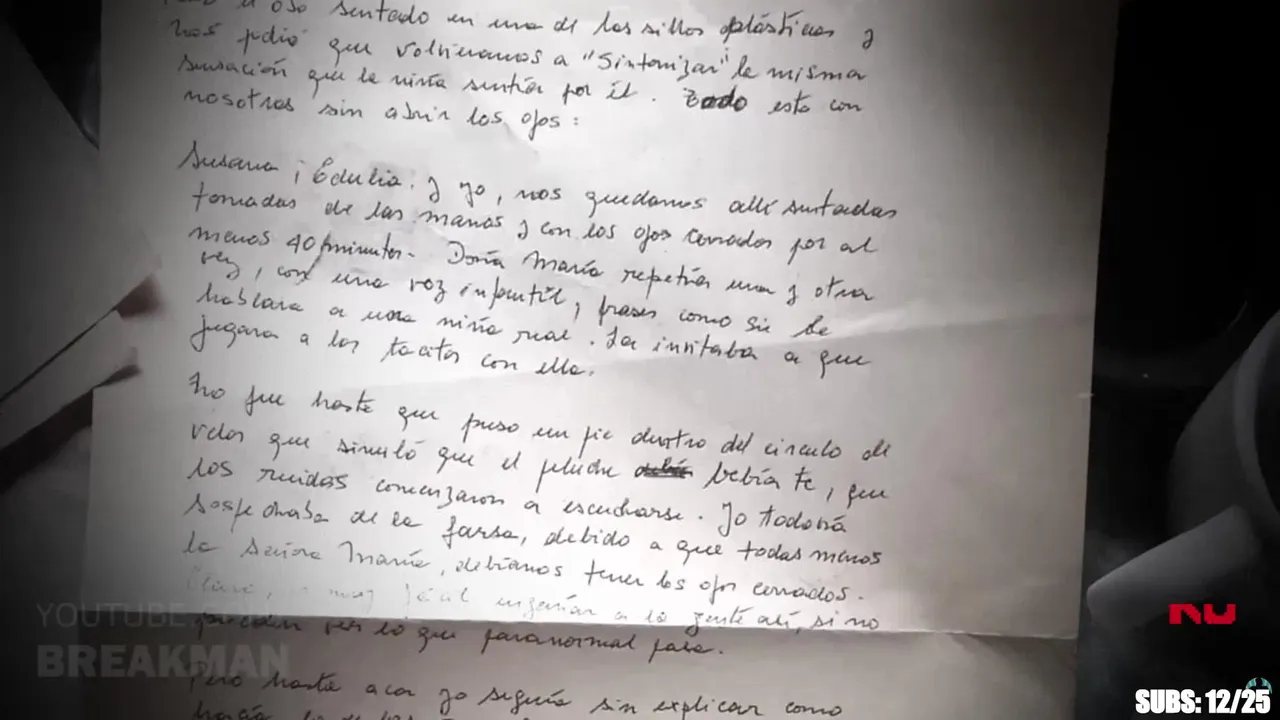 oso sentado en una de las sillas plásticas y
nos pidió que volvieramos a "Sintonizar" la misma
sensación que la niña sentía por él. Todo esto con
nosotras sin abrir los ojos:
Susana, Edulia. y yo, nos quedamos allí sentadas
tomadas de las manos y con los ojos cerrados por al
menos 40 minutos. Doña María repetía una y otra
vez, con una voz infantil, frases como si le
hablara a una niña real. La invitaba a que
jugara a las tacitas con ella.
No fue hasta que puso un pie dentro del circulo de
velas que simuló que el peluche bebía te, que
los ruidos comenzaron a escucharse. Yo todavía
sospechaba de la farsa, debido a que todas menos
la Señora María, debíamos tener los ojos cerrados.
Claro, es muy fácil engañar a la gente así, si no
pueden ver lo que paranormal pasa.
Pero hasta acá yo seguía sin explicar como
YOUTUBE
BREAKMAN
NU
SUBS: 12/25